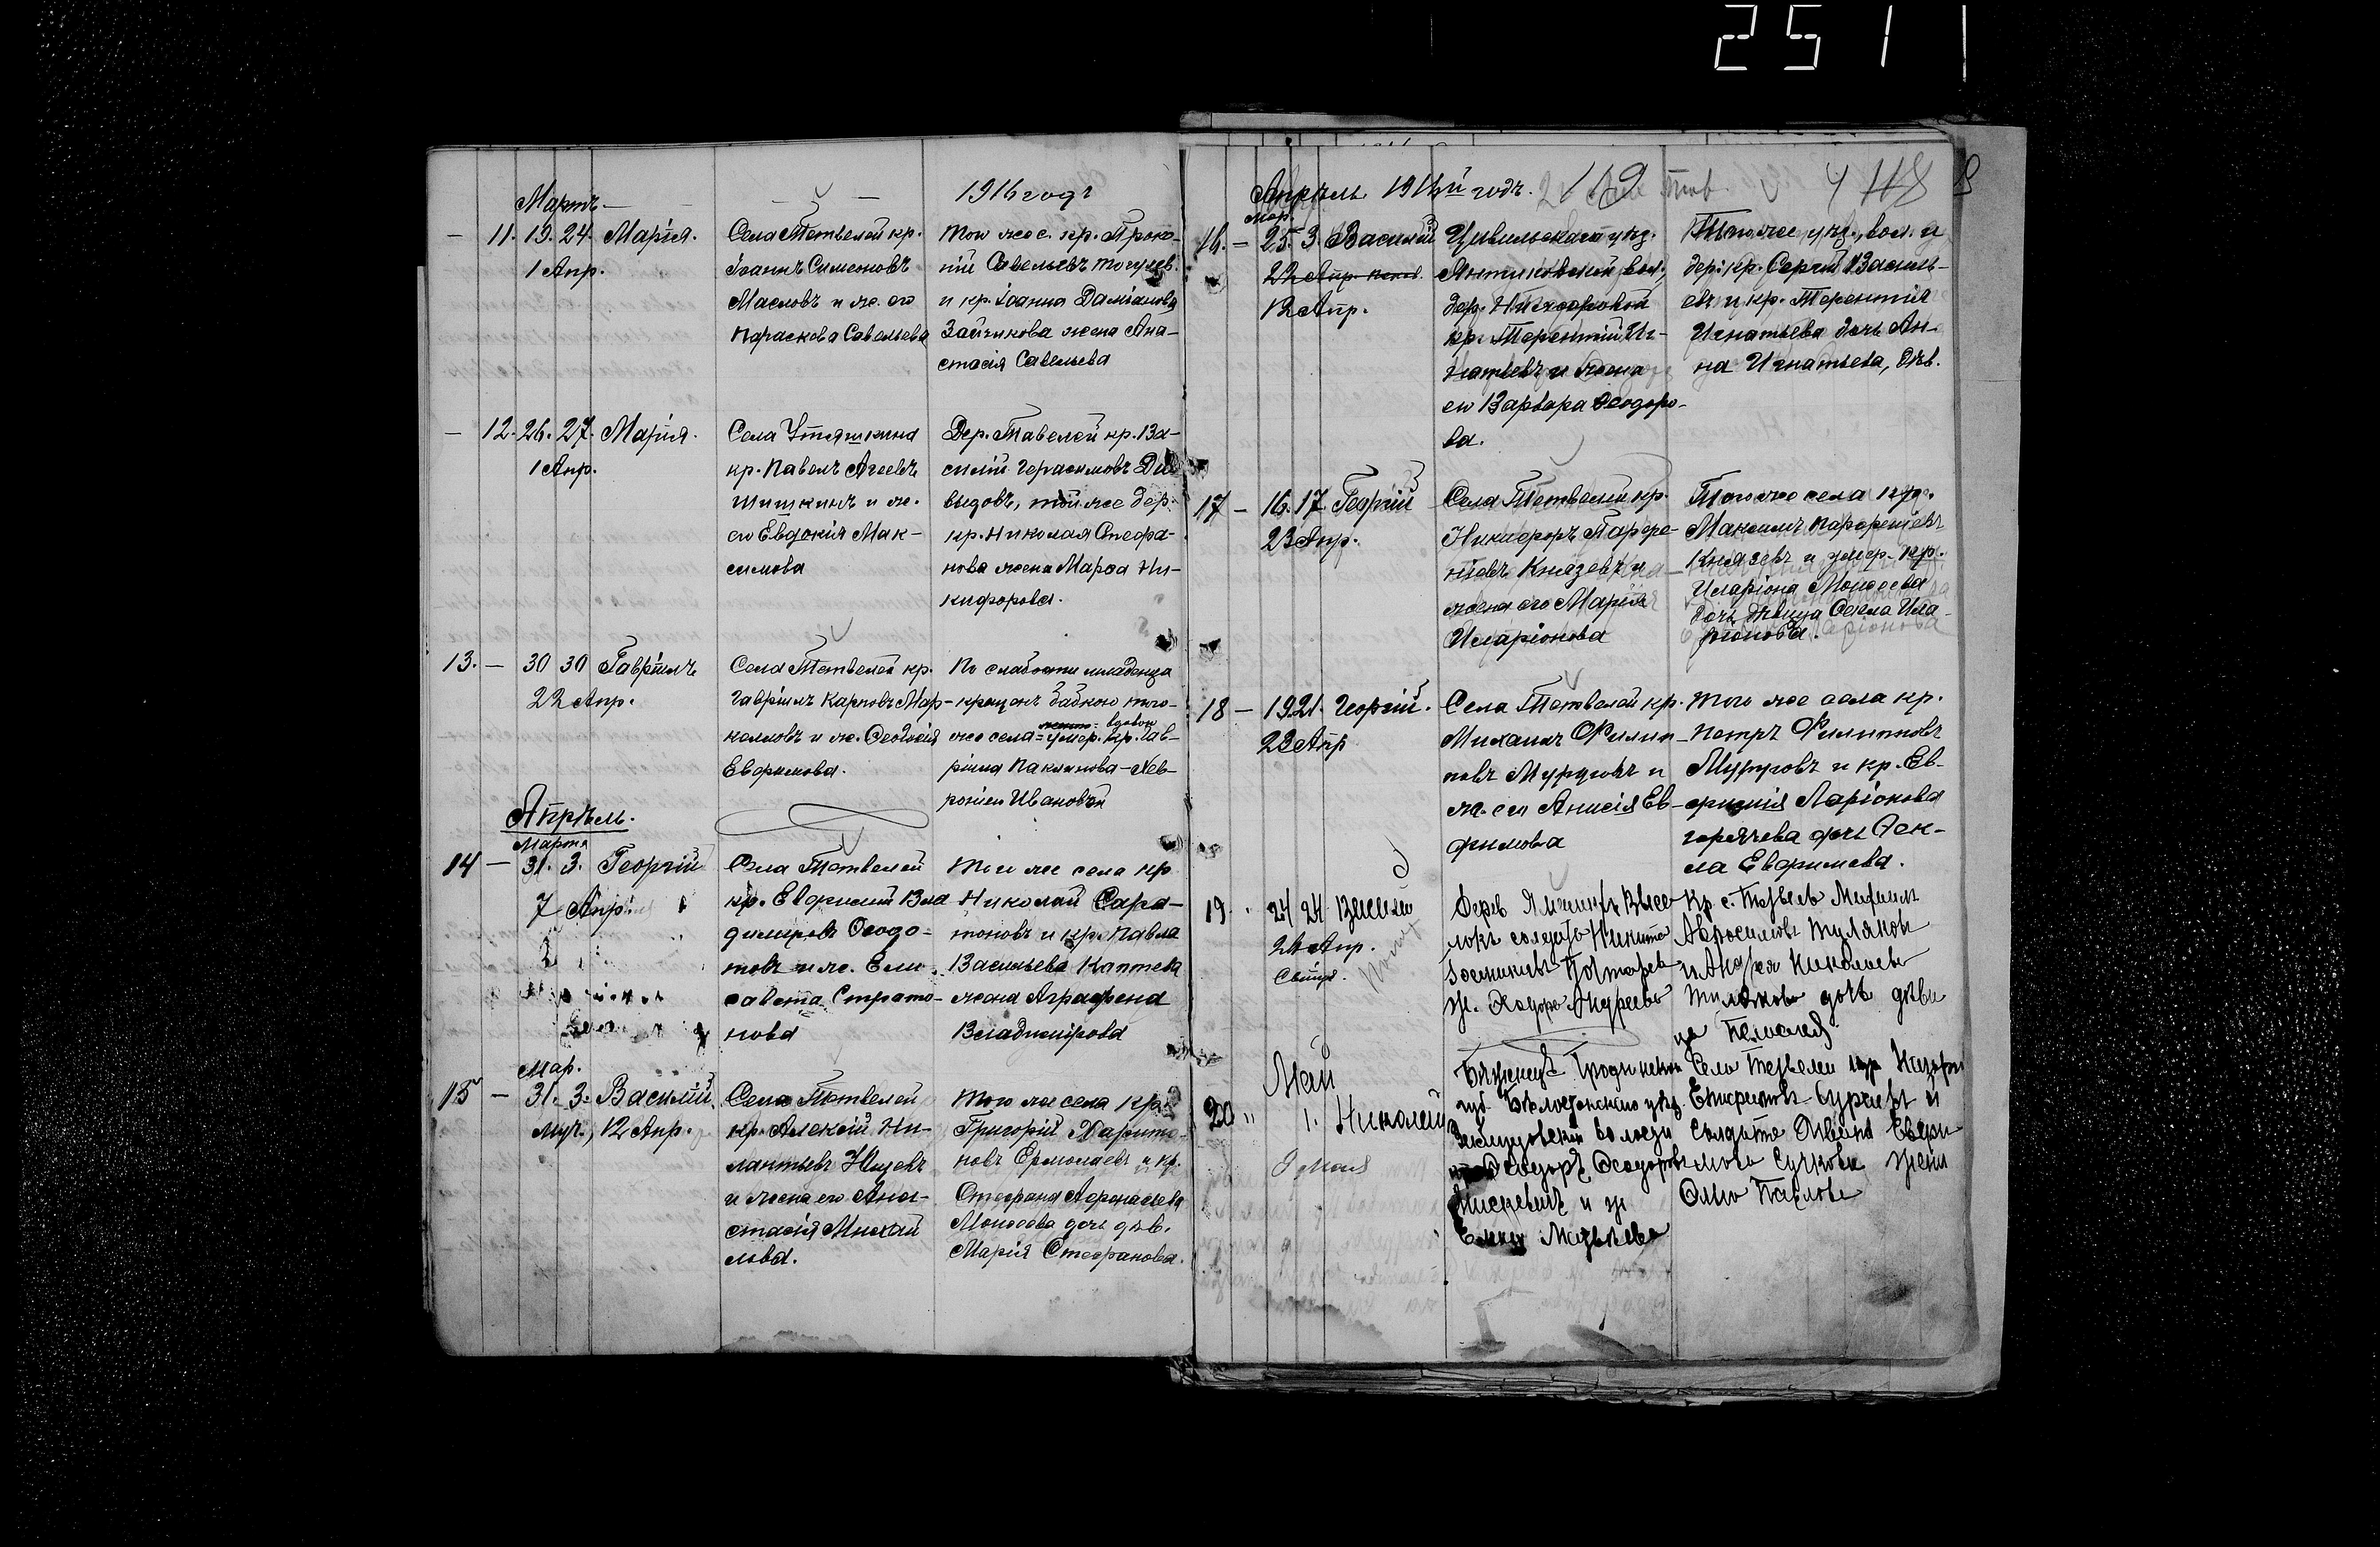 2511
Мартъ
1916 годъ
11. 19. 24. Марія.
1 Апр.
Села Тетвелей кр.
Іоаннъ Симеоновъ
Масловъ и ж. его
Параскева Савельева
того же с. кр. Проко-
пій Савельевъ
и кр. Іоанна Даміанова
Зайчикова жена Ана-
стасія Савельева
12. 26. 27. Марія.
1 Апр.
Села Утяшкина
кр. Павелъ Агеевъ
Шишкинъ и ж.
его Евдокія Мак-
симова
Дер. Тавелей кр. Ва-
силій Герасимовъ Да-
выдовъ, той же дер.
кр. Николая Стефа-
нова жена Марѳа Ни-
кифорова.
13. — 30 30 Гавріилъ
22 Апр.
Села Тетвелей кр.
Гавріилъ Карповъ Мар-
келловъ и ж. Ѳеодосія
Евфимова.
По слабости младенца
крещенъ бабкою того-
вдовою
же села = умер. кр. Гав-
ріила Пакланова — Хев-
роніей Ивановой
Апрѣль.
Марта
14 — 31. 3. Георгій
7 Апр.
Села Тетвелей
кр. Евфимій Вла
диміровъ Ѳеодо-
товъ и ж. Ели-
савета Страто-
нова
того же села кр
Николай Сара-
тоновъ и кр. Павла
Васильева Каптева
жена Аграфена
Владимірова
Мар.
15 — 31. 3. Василій.
муч., 12 Апр.
Села Тетвелей
кр. Алексій Ни-
лантьевъ
и жена его Ана-
стасія Михай
лова.
того же села кр.
Григорій Харито-
новъ Ермолаевъ и кр.
Стефана Афанасьева
Моисеева дочь дѣв.
Марія Стефанова.
Апрѣль 1916й годъ.
119
мар.
16. — 25. 3. Василій
22 Апр.
12 Апр.
Цивильскаго уѣз.
Янтиковской вол.,
дер. Никифоровой
кр. Терентій Иг-
натьевъ и жена
его Варвара Ѳеодоро-
ва.
Того же уѣз., вол. и
дер. кр. Сергій Василь-
евъ и кр. Терентія
Игнатьева дочь Ан-
на Игнатьева, дѣв.
17 — 16. 17. Георгій
23 Апр.
Села Тетвелей кр.
Никифоръ Парфе-
ніевъ Князевъ и
жена его Марія
Иларіонова
Того же села кр.
Максимъ Парфеніевъ
Князевъ и умер. кр.
Иларіона Моисеева
дочь дѣвица Ѳекла Ила-
ріонова.
18 — 19 21. Георгій.
23 Апр
Села Тетвелей кр.
Михаилъ Филип-
повъ Муруговъ и
ж. его Анисія Ев-
фимова
того же села кр.
Петръ Филипповъ
Муруговъ и кр. Ев-
фимія Ларіонова
Горячева дочь Ѳек-
ла Евфимова.
19. 24 24 Василій
24 Апр.
Дерев
солдатъ Никита
ж. Ѳедора Андреева
Кр. с.
и Андрея Николаева
дочь дѣви
ца Пелагея
Май
20 " 1. Николай
Бѣженецъ Гродненской
губ. Бѣлостокскаго уѣз.
волости
Ѳеодоръ Ѳеодоровъ
и ж
Матвѣева
Села Тетвелей кр
и
Солдата Евфи
мова Сучкова жена
Павлова